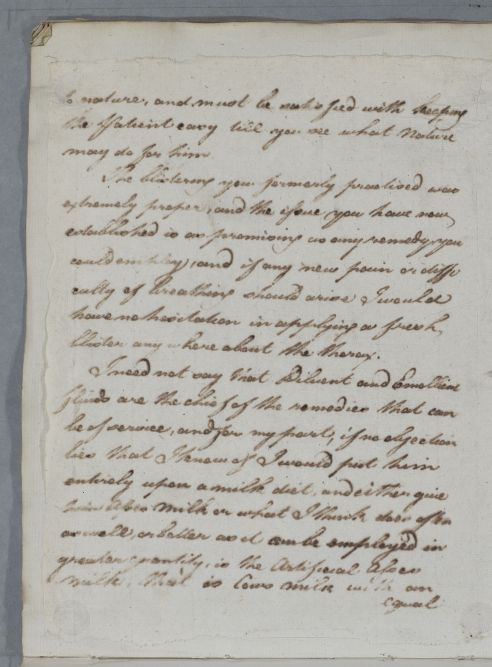 to nature, and must be satisfied with keeping
the Patient easy till you see what Nature
may do for him.
The blistering you formerly practised was
extremely proper, and the issue you have now
established is as promising as any remedy you
could employ, and if any new pain or diffi
culty of breathing should arise I would
have no hesitation in applying a fresh
blister any where about the thorax.
I need not say that Diluent and Emollient
fluids are the chief of the remedies that can
be of service, and for my part, if no objection
lies that I know of I would put him
entirely upon a milk diet, and either give
him Asses milk or what I think does often
as well, or better as it can be employed in
greater quantity, is the Artificial Asses
milk, that is Cows milk with an
equal